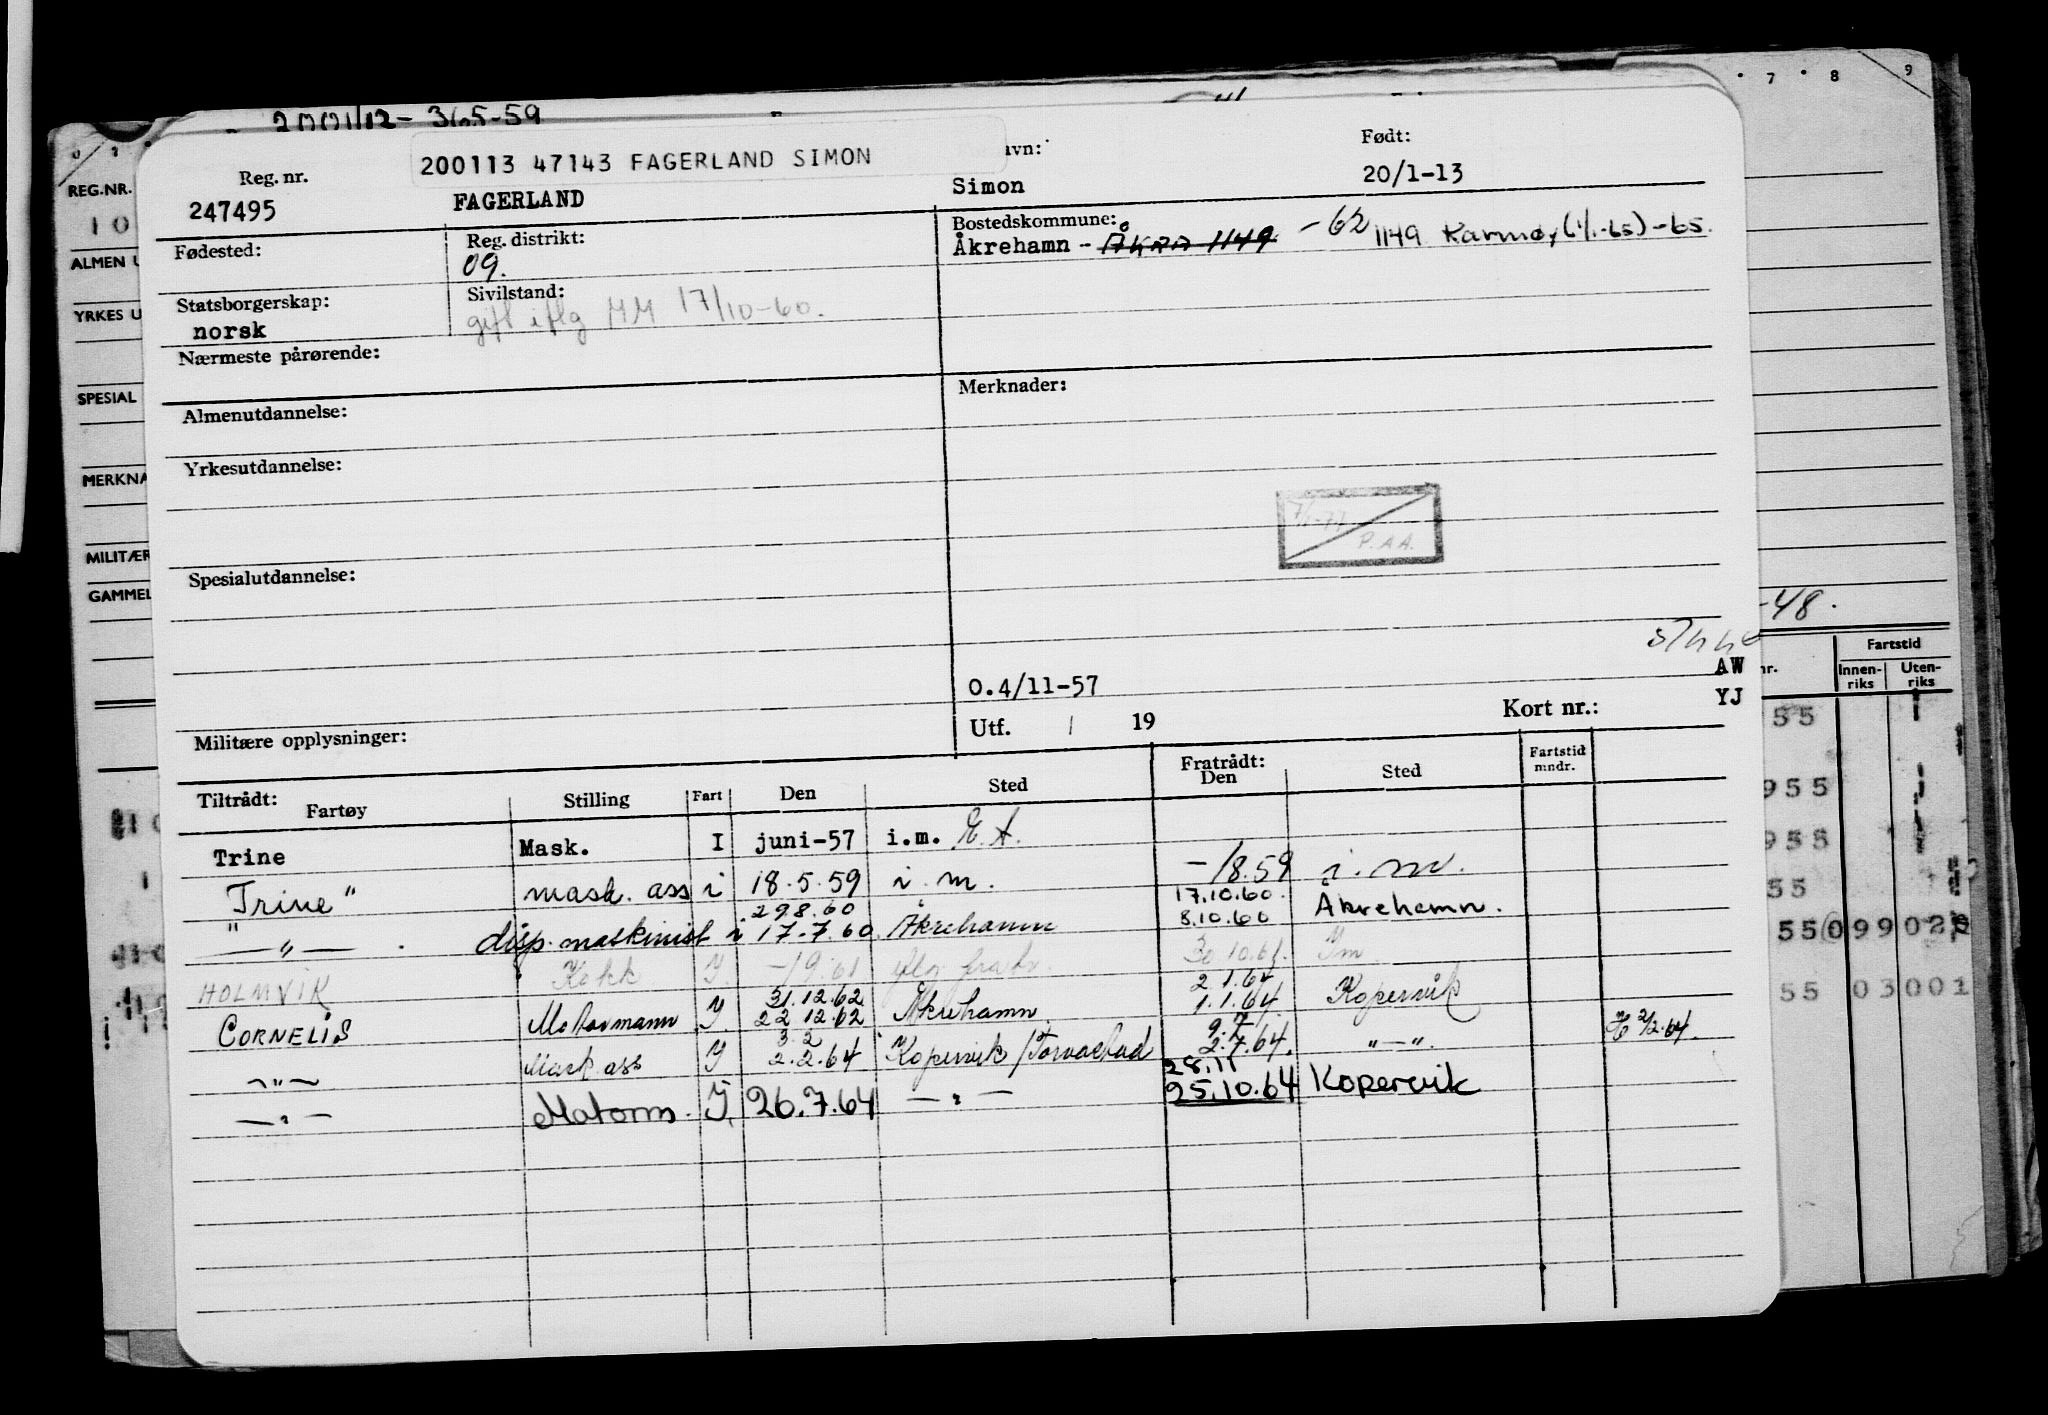 2001112-365-59
7 8 9
200113 47143 FAGERLAND SIMON
Reg. nr. avn: Født:
247495 FAGERLAND Simon 20/1-13
Fødested: Reg. distrikt: Bostedskommune:
09. Åkrehamn - Åkra 1149 -62 1149 Karmøy (1/1-65) -65.
Statsborgerskap: Sivilstand:
norsk gift iflg MM 17/10-60.
Nærmeste pårørende:
Almenutdannelse: Merknader:
Yrkesutdannelse:
7/1-77 P. A A.
Spesialutdannelse:
O.4/11-57 AW
Utf. / 19 Kort nr.: YJ
Militære opplysninger:
Tiltrådt: Fratrådt:
Fartøy Stilling Fart Den Sted Den Sted Fartstid mndr.
Trine Mask. I juni-57 i.m. E.A.
Trine" mask. ass i 18.5.59 i.m. -/8.59 i.m.
29.8.60 17.10.60.
" — " — . disp. maskinist i 17.7.60. Åkrehamn 8.10.60 Åkrehamn.
HOLMVIK Kokk Y -/9.61 30.10.61. Im
31.12.62 2.1.64
CORNELIS Motormann Y 22 12.62 Åkrehamn 1.1.64 Kopervik
3.2 9.7
— " — Mask ass Y 2.2.64 Kopervik/Torvastad 2.7.64. " — ". 2/2.64.
28.11
— " — Motorm. Y. 26.7.64 — " — 25.10.64 Kopervik
REG.NR.
10
ALMEN U
YRKES U
SPESIAL
MERKNA
MILITÆR
GAMMEL
-48.
nr. Fartstid
Innen-riks Uten-riks
55
955
955
55
55 09902
55 03001